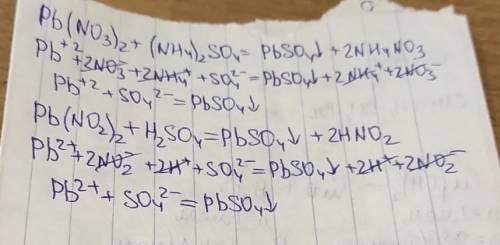 Pb(NO₃)₂ + (NH₄)₂SO₄ = PbSO₄↓ + 2NH₄NO₃
Pb⁺² + 2NO₃⁻ + 2NH₄⁺ + SO₄²⁻ = PbSO₄↓ + 2NH₄⁺ + 2NO₃⁻
Pb⁺² + SO₄²⁻ = PbSO₄↓
Pb(NO₂)₂ + H₂SO₄ = PbSO₄↓ + 2HNO₂
Pb²⁺ + 2NO₂⁻ + 2H⁺ + SO₄²⁻ = PbSO₄↓ + 2H⁺ + 2NO₂⁻
Pb²⁺ + SO₄²⁻ = PbSO₄↓